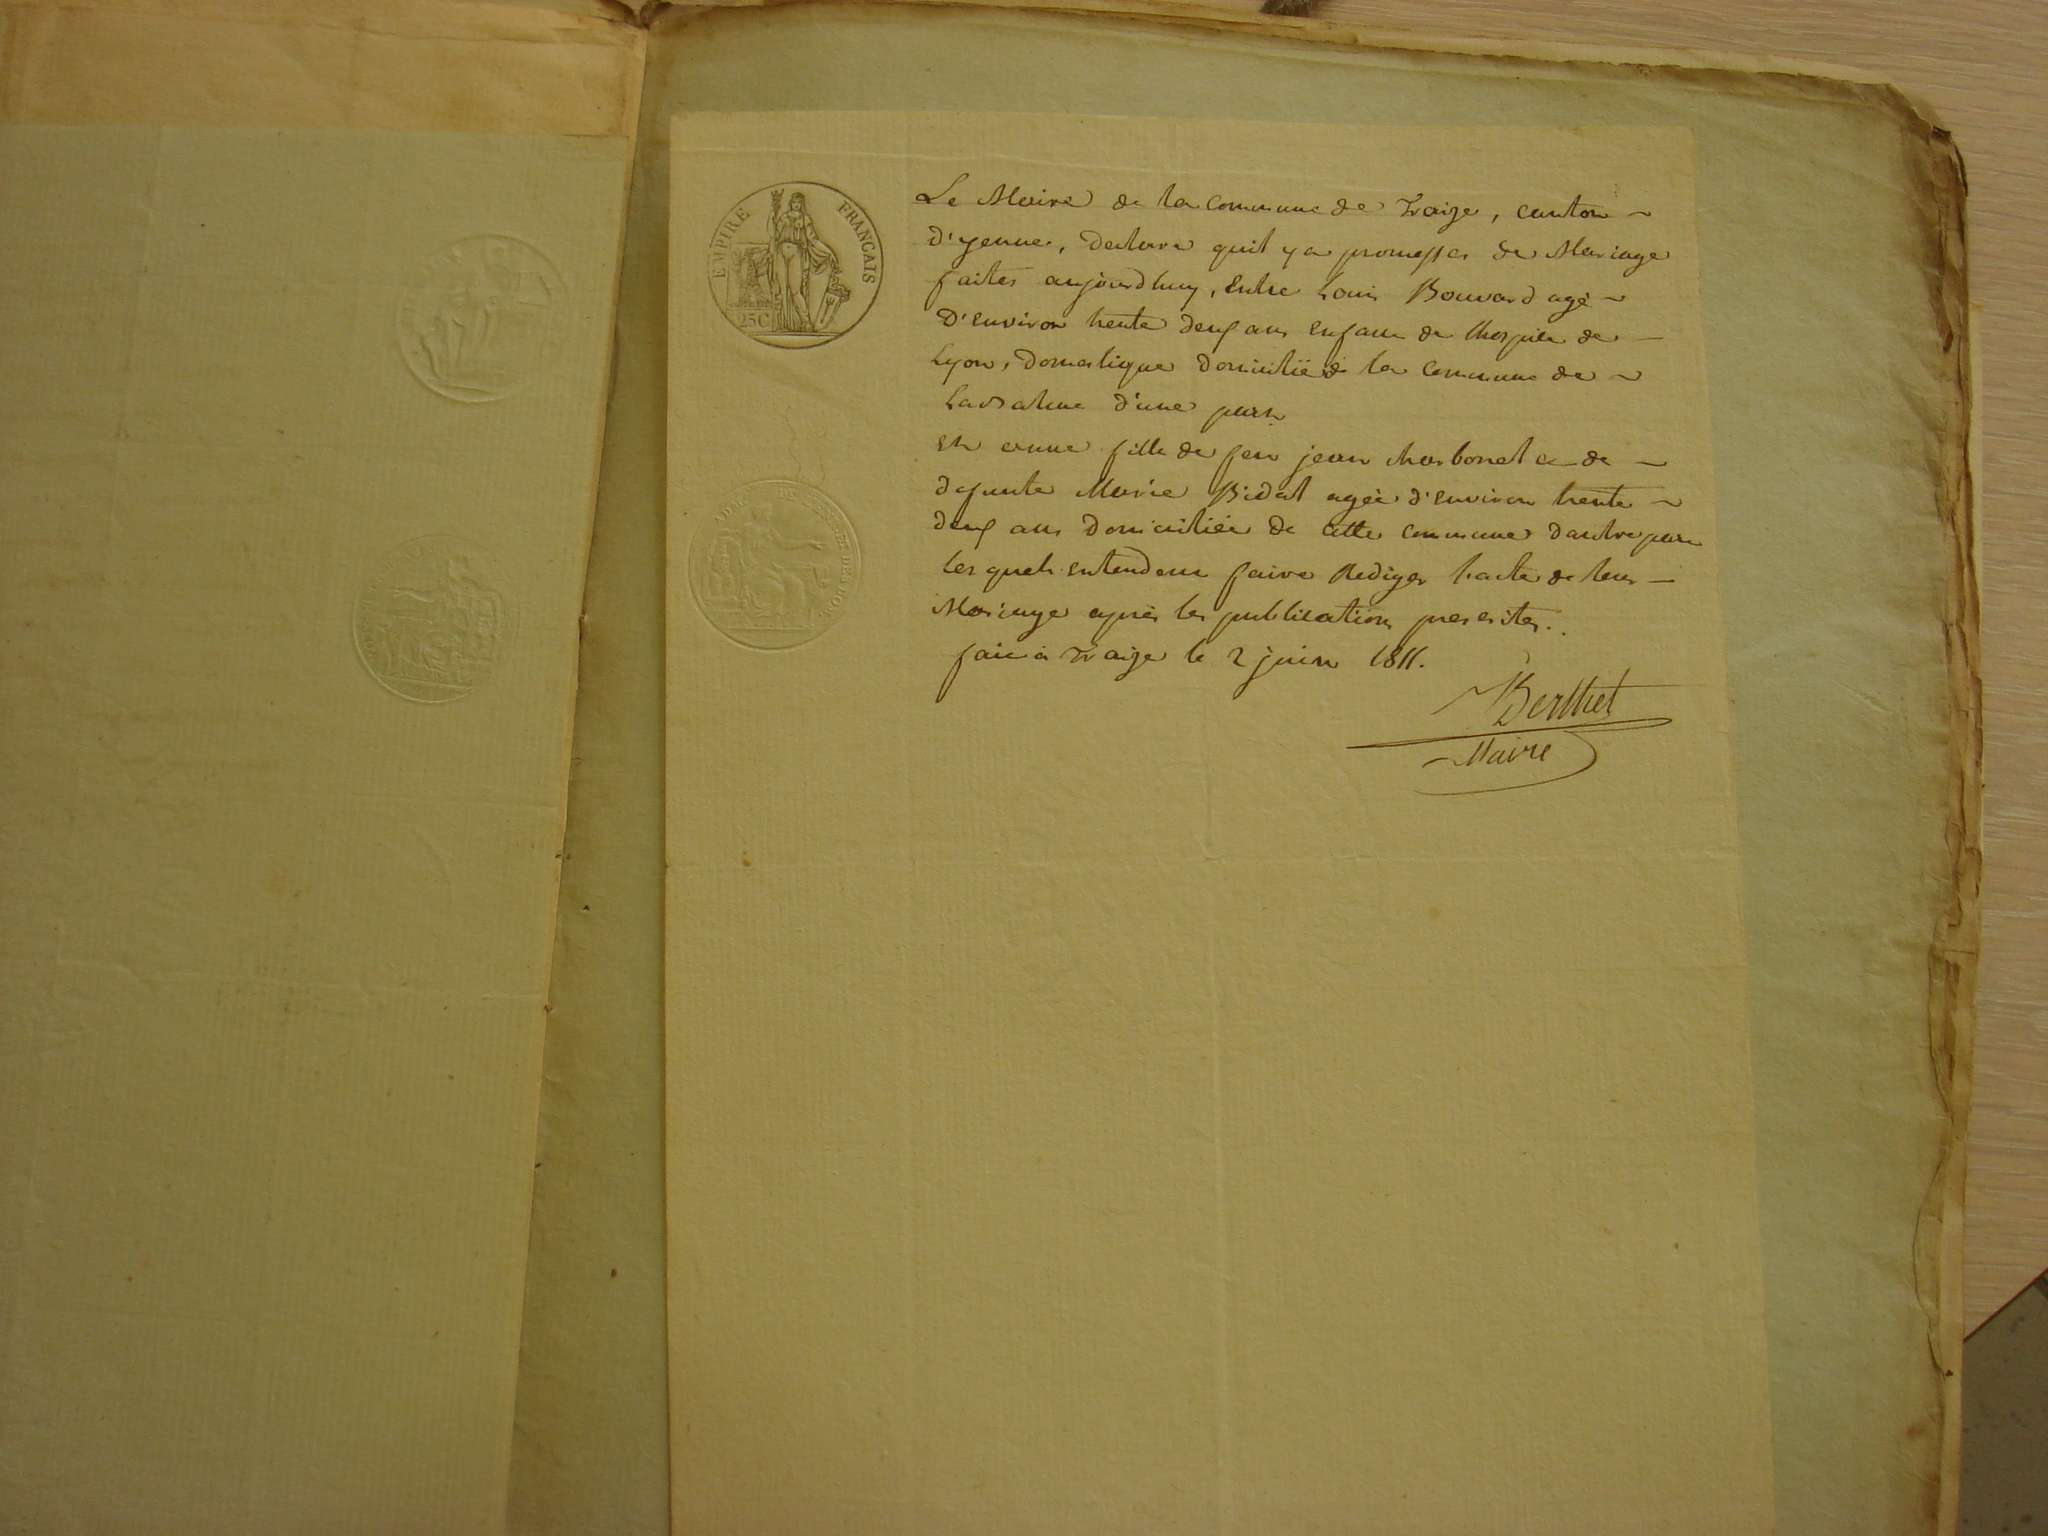 EMPIRE FRANÇAIS
25C
Le Maire de la Commune de Traize, canton
d'yenne, declare quil y a promesses de Mariage
faites aujourdhuy, Entre Louis Bouvard agé
D'environ trente deux ans enfant de lhospice de
Lyon, Domestique Domicilié à la Commune de
d'une part
Et anne fille de feu jean charbonel et de
defunte Marie Bidal agée d'environ trente
deux ans Domiciliée de cette commune dautre part
les quels entendent faire Rediger lacte de leur
Mariage après les publications prescrites.
fait à Traize le 2 juin 1811.
Berthet
Maire